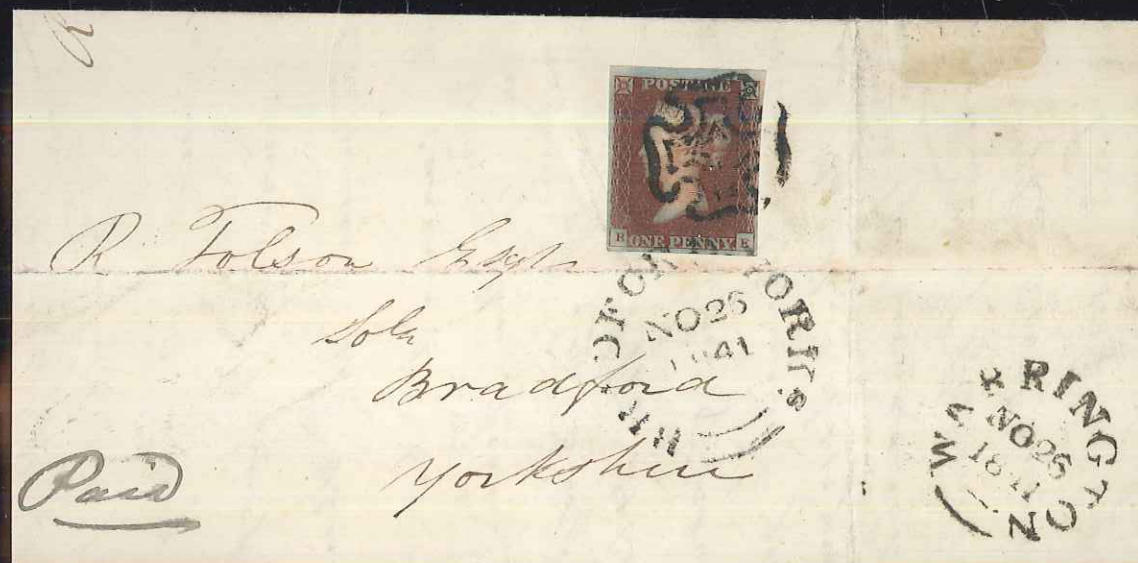 POSTAGE
F ONE PENNY E
R Tolson Esqr
Solr
Bradford
Yorkshire
Paid
BRADFORD YORKS
NO 26
1841
WARRINGTON
NO 26
1841